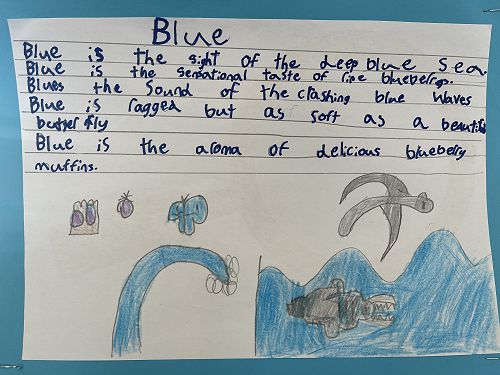 Blue
Blue is the sight of the deep blue sea.
Blue is the sensational taste of ripe blueberrys.
Blues the sound of the crashing blue waves
Blue is ragged but as soft as a beautiful
butterfly
Blue is the aroma of delicious blueberry
muffins.